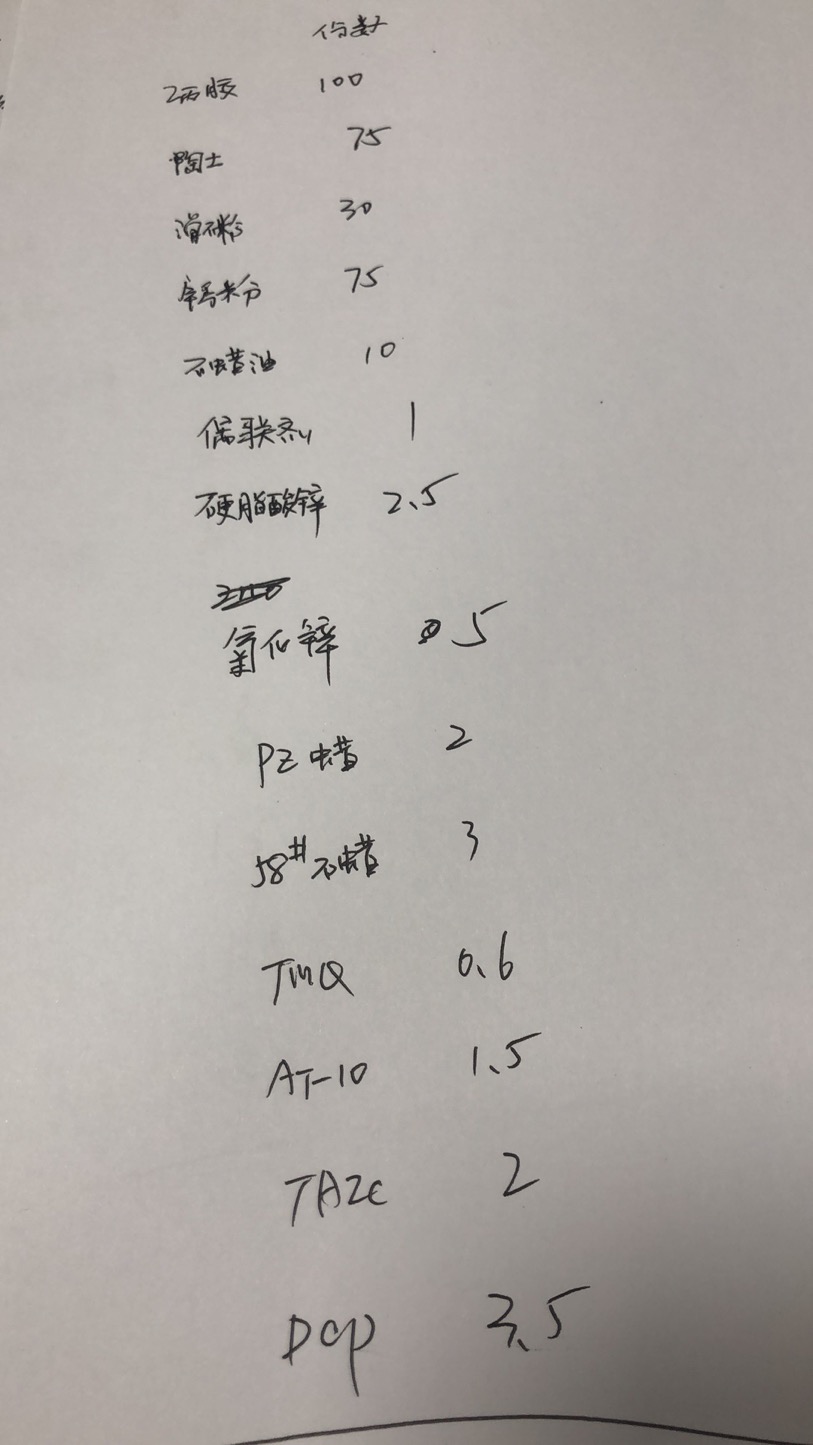 份数
乙丙胶 100
陶土 75
滑石粉 30
75
石蜡油 10
偶联剂 1
硬脂酸锌 2.5
氧化锌 5
PZ 蜡 2
58# 石蜡 3
TMQ 0.6
AT-10 1.5
TAIC 2
DCP 3.5